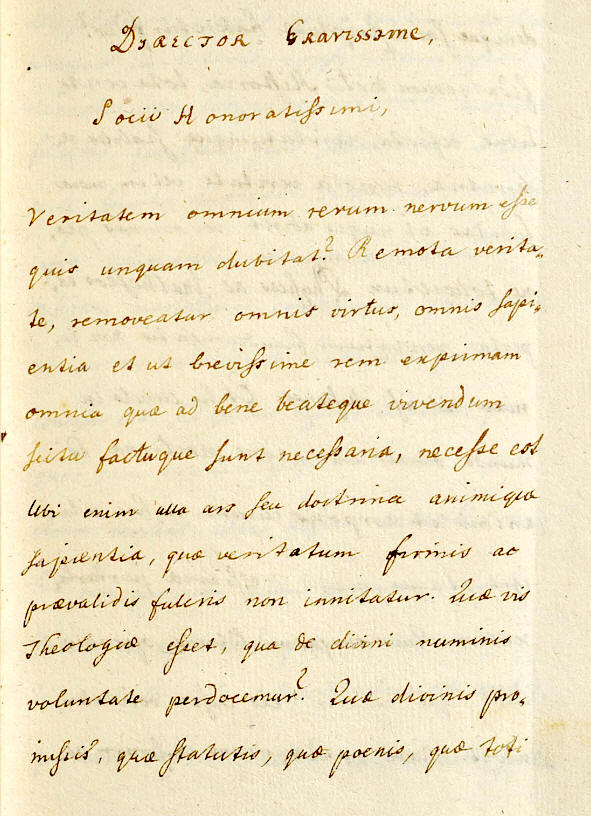 Director Gravissime,
Socii Honoratissimi,
Veritatem omnium rerum nervum esse
quis unquam dubitat? Remota verita-
te, removeatur omnis virtus, omnis sapi-
entia et ut brevissime rem exprimam
omnia quæ ad bene beateque vivendum
scitu factuque sunt necessaria, necesse est
Ubi enim ulla ars seu doctrina animique
sapientia, quæ veritatum firmis ac
prævalidis fulcris non innitatur. Quæ vis
Theologiæ esset, qua de divini numinis
voluntate perdocemur? Quæ divinis pro-
missis, quæ statutis, quæ poenis, quæ toti